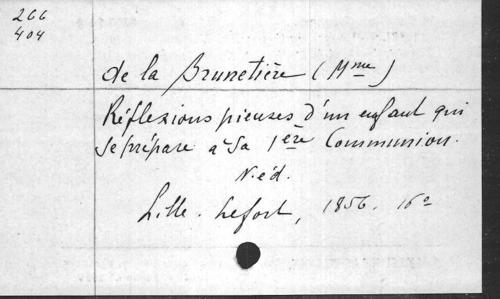 266
404
de la Brunetière (Mme)
Réflexions pieuses d'un enfant qui
se prépare à sa 1ère Communion.
N. éd.
Lille. Lefort, 1856. 16°